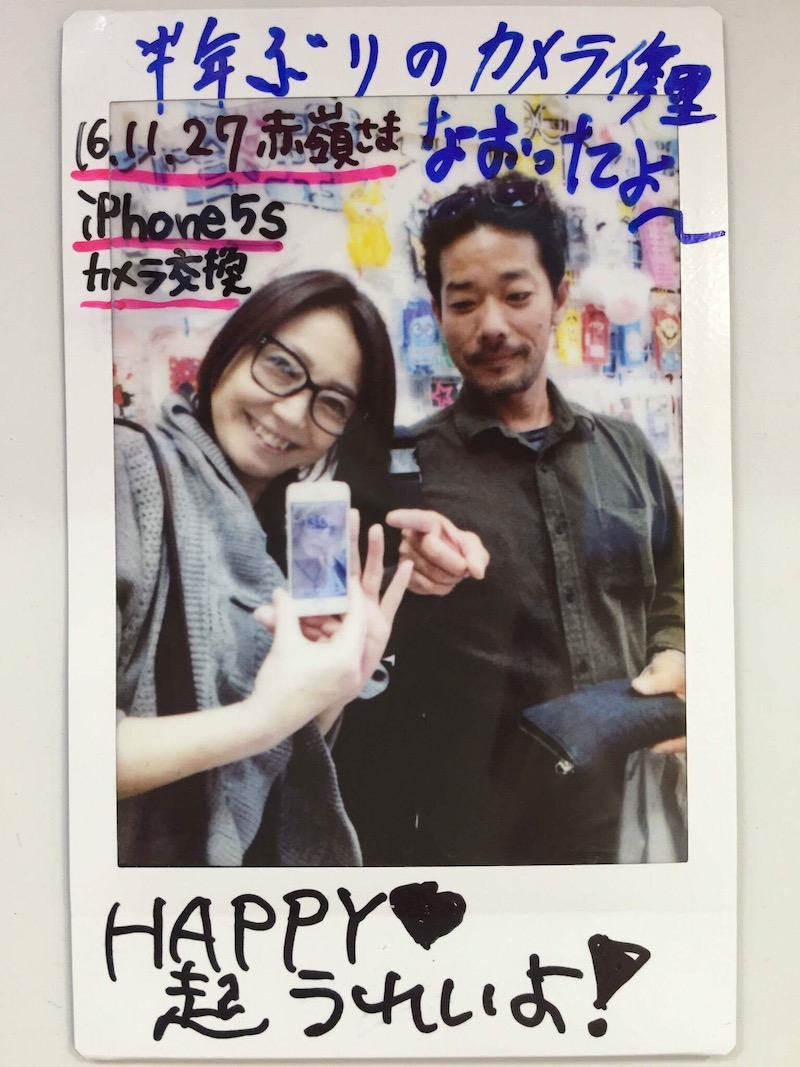 半年ぶりのカメラ修理
なおったよ〜
16.11.27 赤嶺さま
iPhone5s
カメラ交換
HAPPY♥
超うれいよ!